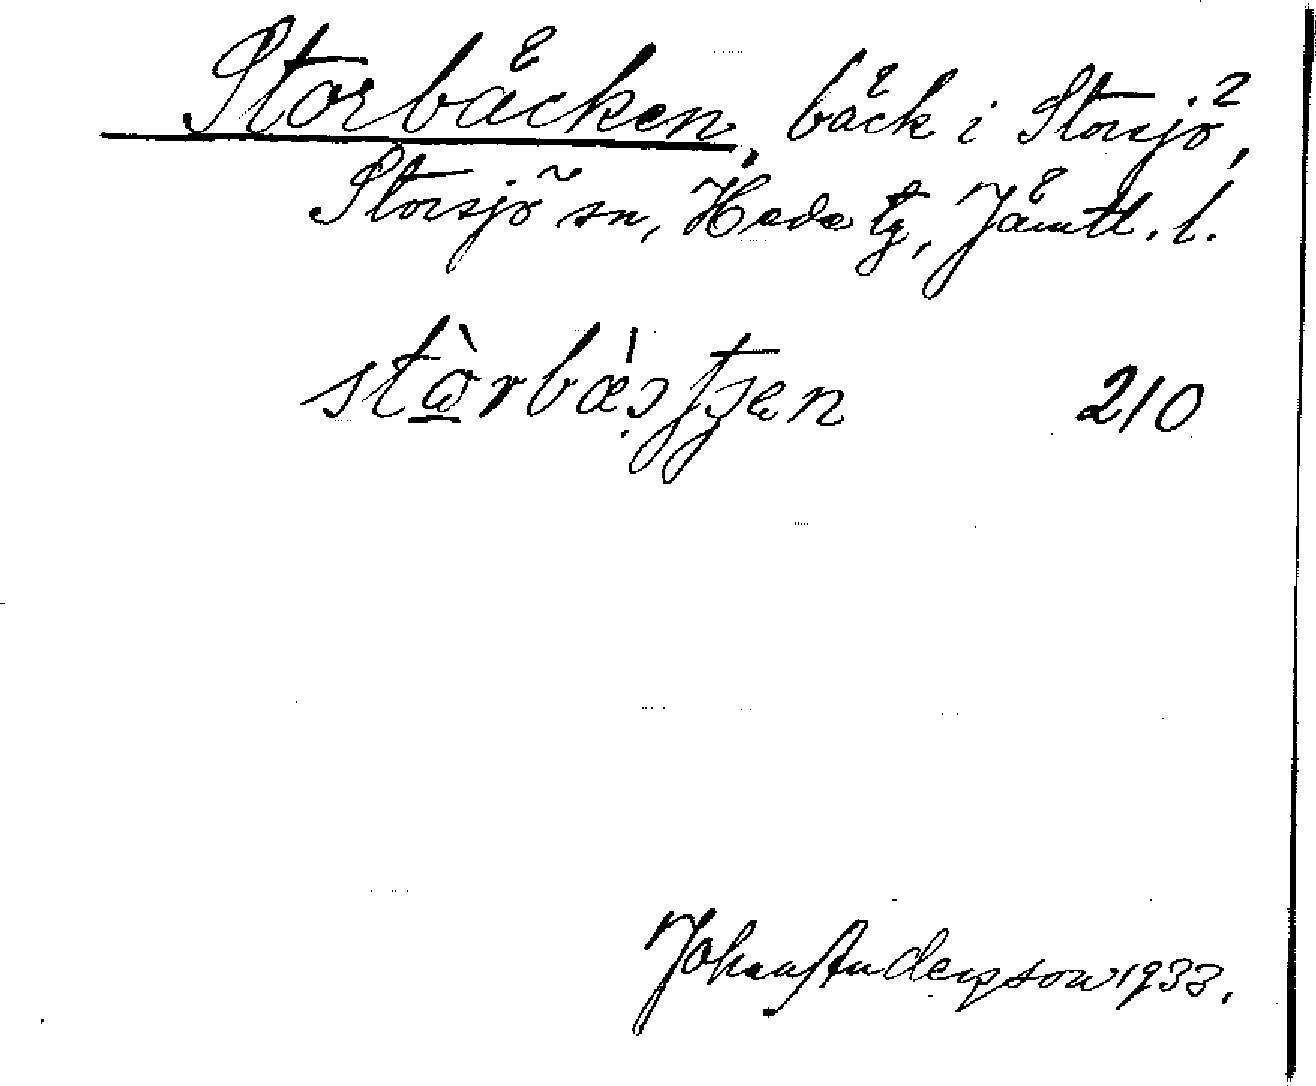 Storbäcken, bäck i Storsjö,
Storsjö sn, Hede tg, Jämtl. l.
210
Johan Anderson 1933.